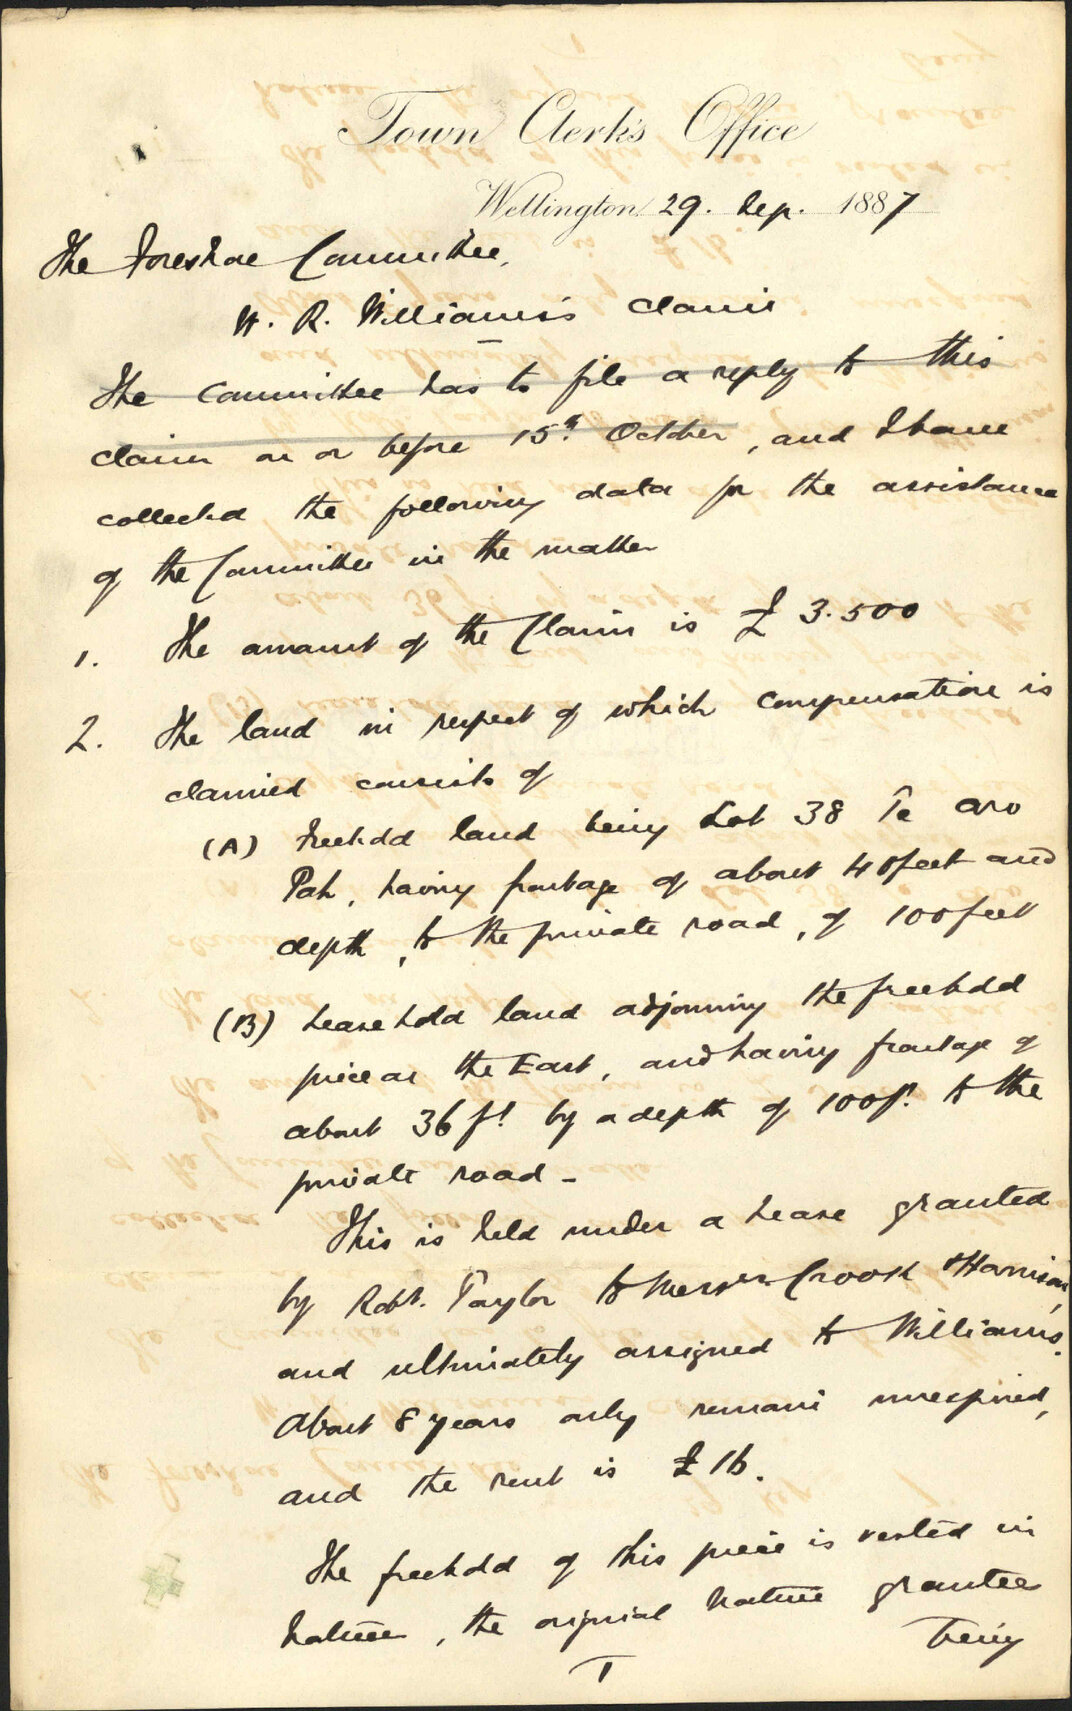 Town Clerk's Office
Wellington 29. Sep. 1887
The Foreshore Committee,
W. R. Williams's claim
The Committee has to file a reply to this
claim on or before 15th October, and I have
collected the following data for the assistance
of the Committee in the matter
1. The amount of the Claim is £ 3.500
2. The land in respect of which compensation is
claimed consists of
(A) Freehold land being Lot 38 Te aro
Pah, having frontage of about 40 feet and
depth, to the private road, of 100 feet
(B) Leasehold land adjoining the freehold
piece on the East, and having frontage of
about 36 ft by a depth of 100 ft. to the
private road -
This is held under a Lease granted
by Robt. Taylor to Messrs Crook & Harrison,
and ultimately assigned to Williams.
About 8 years only remain unexpired,
and the rent is £ 16.
The freehold of this piece is vested in
Natives, the original Native grantees
being